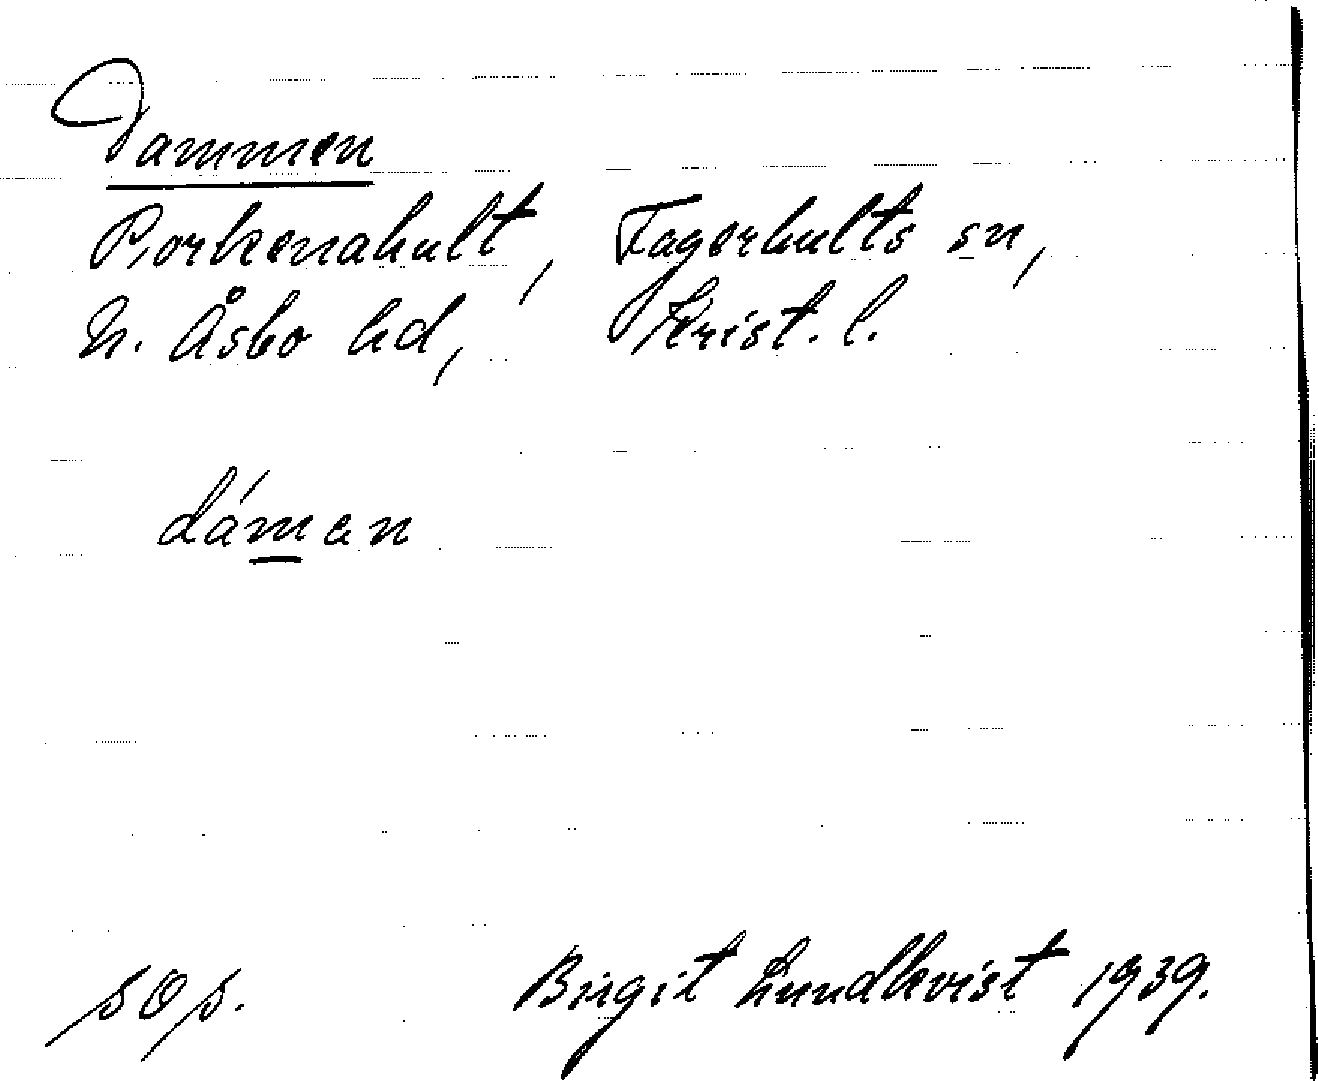 Dammen
Porkenahult, Fagerhults sn,
N. Åsbo hd, Krist. l.
dáman
sop.
Birgit Lundkvist 1939.